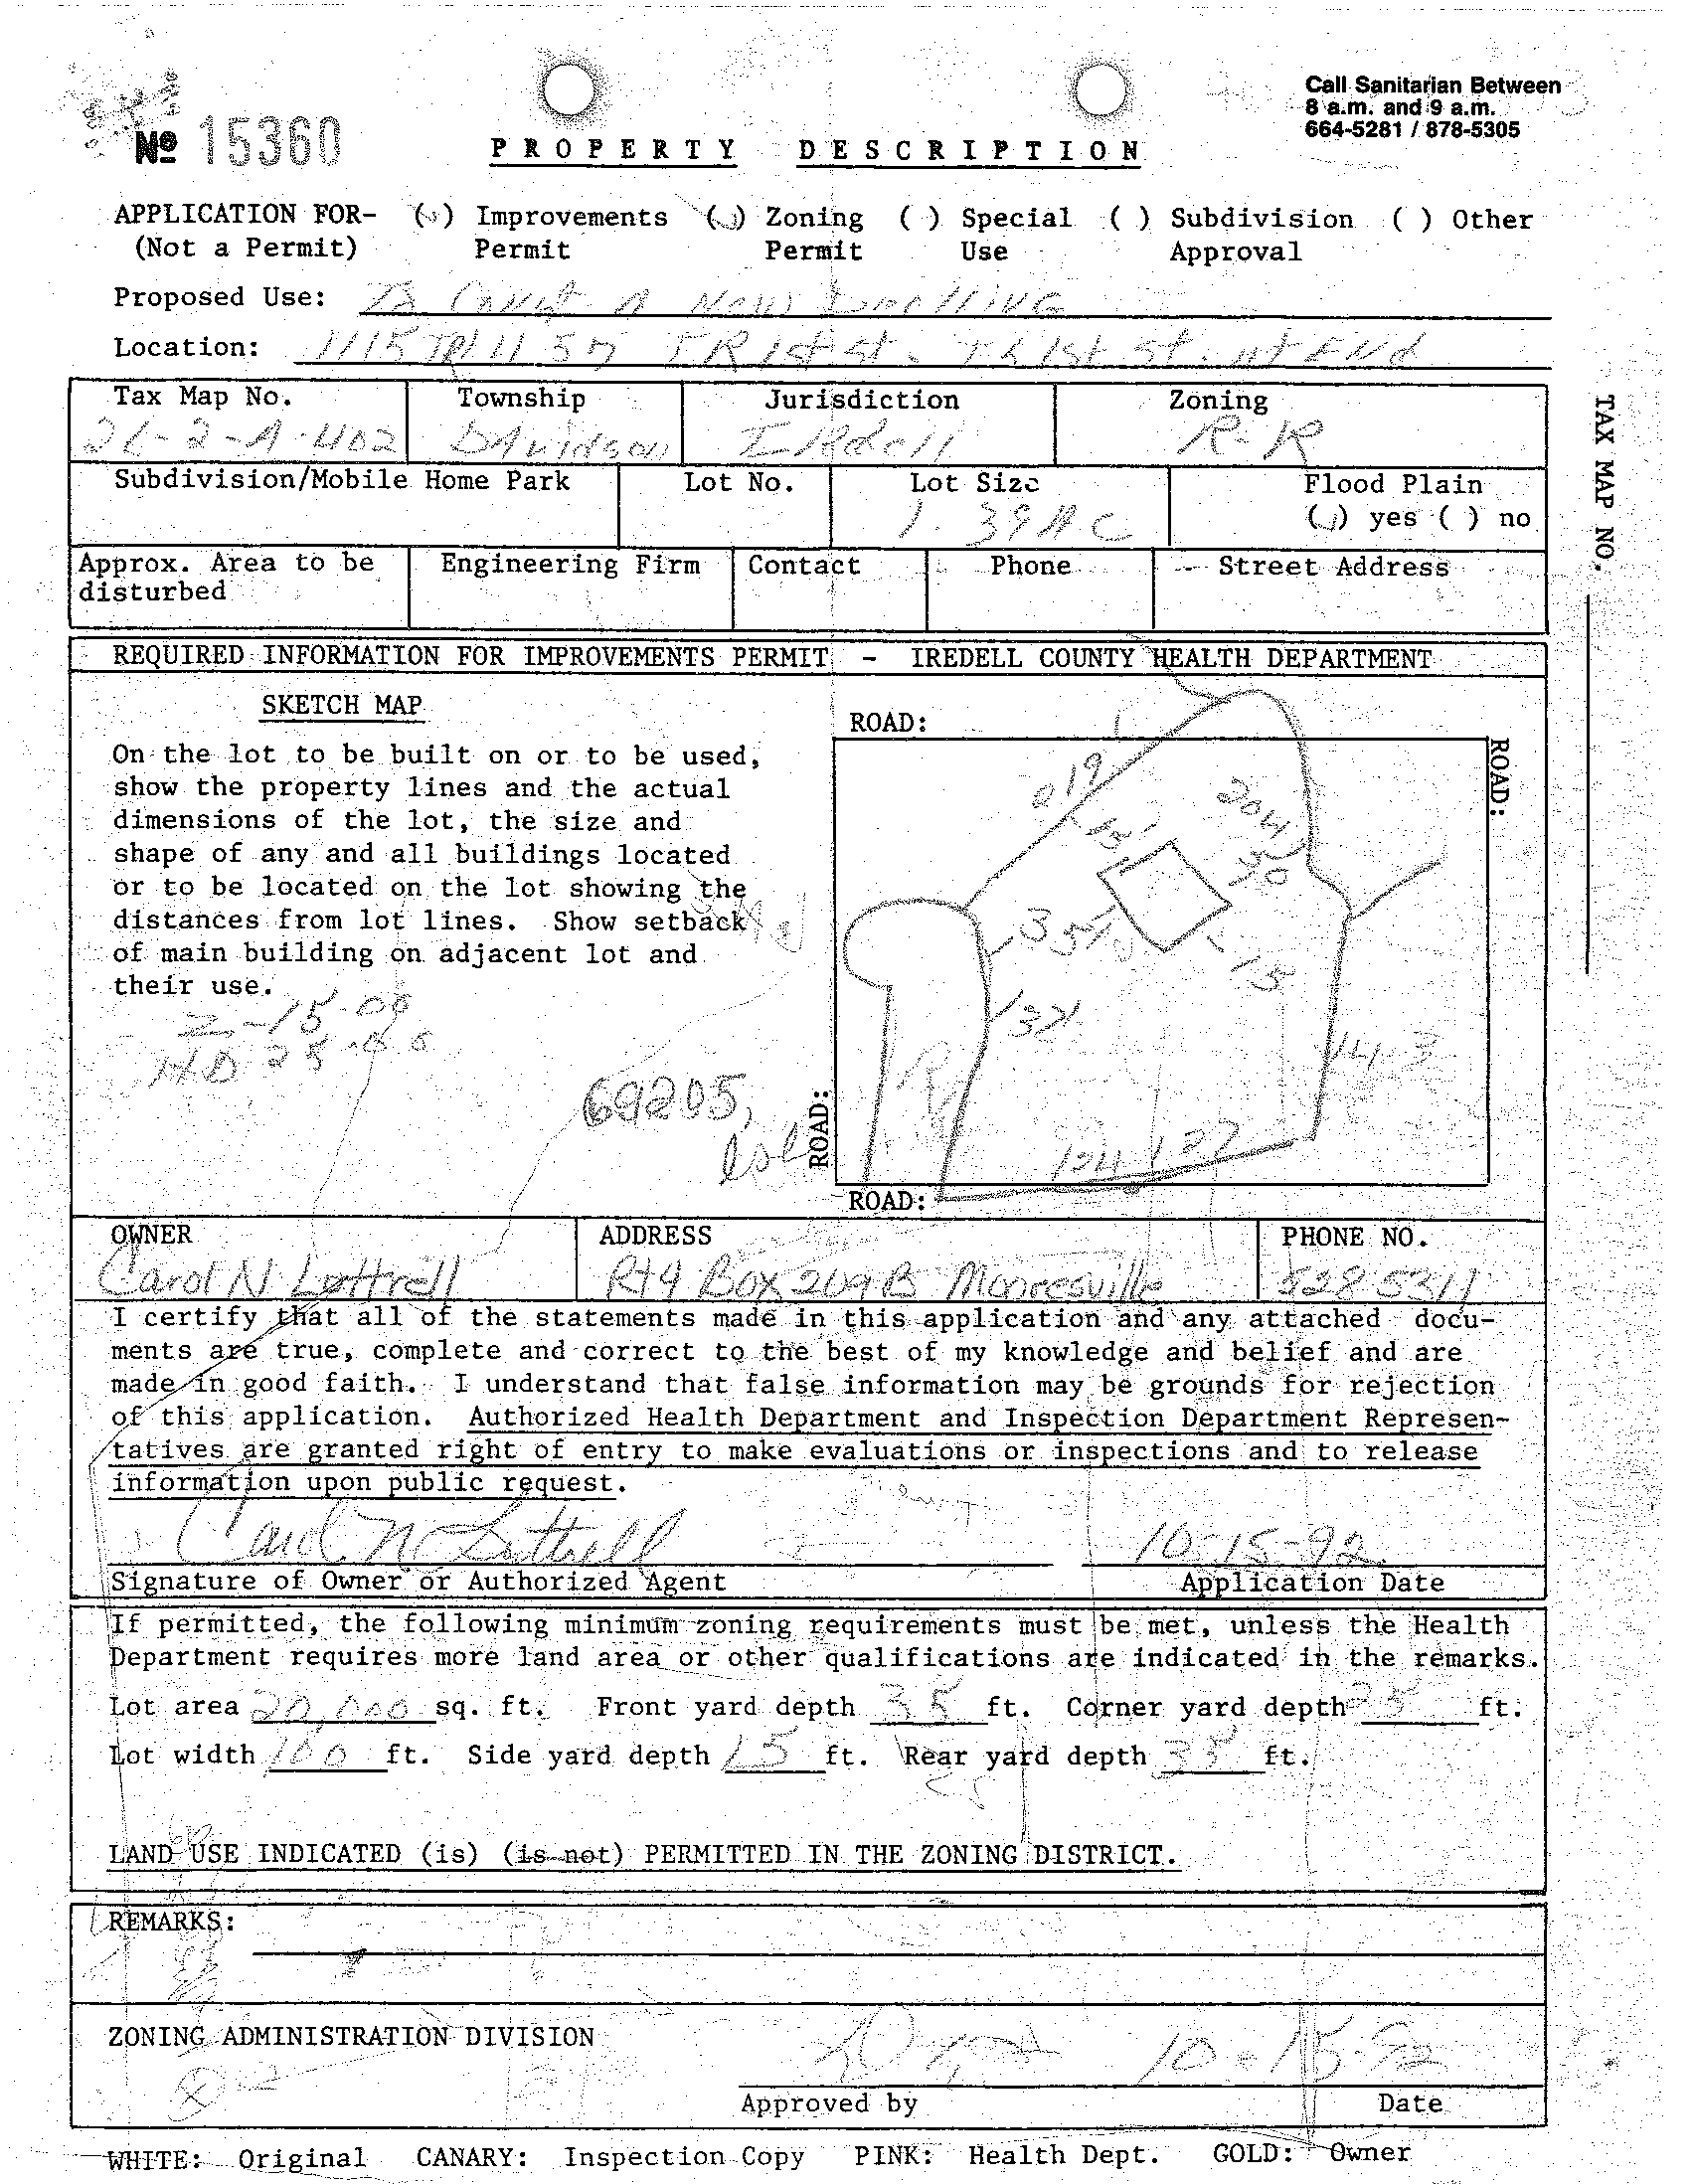 Call Sanitarian Between
8 a.m. and 9 a.m.
664-5281 / 878-5305
№ 15360
PROPERTY DESCRIPTION
APPLICATION FOR- (✓) Improvements (✓) Zoning ( ) Special ( ) Subdivision ( ) Other
(Not a Permit) Permit Permit Use Approval
Proposed Use: To Const A New Dwelling
Location: 1115 TR 1st St. TL 1st St. at End
Tax Map No. Township Jurisdiction Zoning
2L-2-A-402 Davidson Iredell R-R
Subdivision/Mobile Home Park Lot No. Lot Size Flood Plain
1.39 AC (✓) yes ( ) no
Approx. Area to be Engineering Firm Contact Phone Street Address
disturbed
TAX MAP NO.
REQUIRED INFORMATION FOR IMPROVEMENTS PERMIT - IREDELL COUNTY HEALTH DEPARTMENT
SKETCH MAP
On the lot to be built on or to be used,
show the property lines and the actual
dimensions of the lot, the size and
shape of any and all buildings located
or to be located on the lot showing the
distances from lot lines. Show setback
of main building on adjacent lot and
their use.
Z-15.00
H.D 25.00
69205,
ROAD:
ROAD:
219
204
35
15
132
143
124 137
ROAD:
ROAD:
OWNER ADDRESS PHONE NO.
Carol N Luttrell Rt 9 Box 209B Mooresville 528 5311
I certify that all of the statements made in this application and any attached docu-
ments are true, complete and correct to the best of my knowledge and belief and are
made in good faith. I understand that false information may be grounds for rejection
of this application. Authorized Health Department and Inspection Department Represen-
tatives are granted right of entry to make evaluations or inspections and to release
information upon public request.
Carol N Luttrell 10-15-92
Signature of Owner or Authorized Agent Application Date
If permitted, the following minimum zoning requirements must be met, unless the Health
Department requires more land area or other qualifications are indicated in the remarks.
Lot area 20,000 sq. ft. Front yard depth 35 ft. Corner yard depth 25 ft.
Lot width 100 ft. Side yard depth 15 ft. Rear yard depth 35 ft.
LAND USE INDICATED (is) (is not) PERMITTED IN THE ZONING DISTRICT.
REMARKS:
ZONING ADMINISTRATION DIVISION
10-15-92
Approved by Date
WHITE: Original CANARY: Inspection Copy PINK: Health Dept. GOLD: Owner